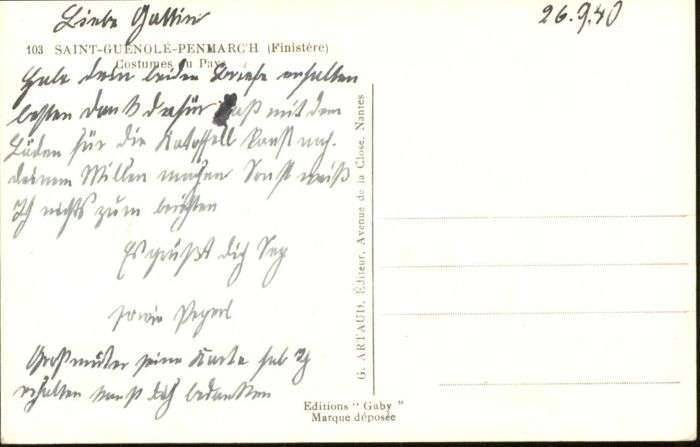 Liebe Gattin 26.9.40
103 SAINT-GUÉNOLÉ-PENMARC'H (Finistère)
Costumes du Pays
Habe dein beiden Briefe erhalten
besten Dank dafür daß mit dem
Läden für die Katoffell kanst nach
deinem Willen machen Sonst weiß
Ich nichts zum berichten
Es grüßt dich
sowie
Großmutter seine Karte hab Ich
erhalten kanst dich bedanken
G. ARTAUD, Éditeur, Avenue de la Close, Nantes
Editions "Gaby"
Marque déposée